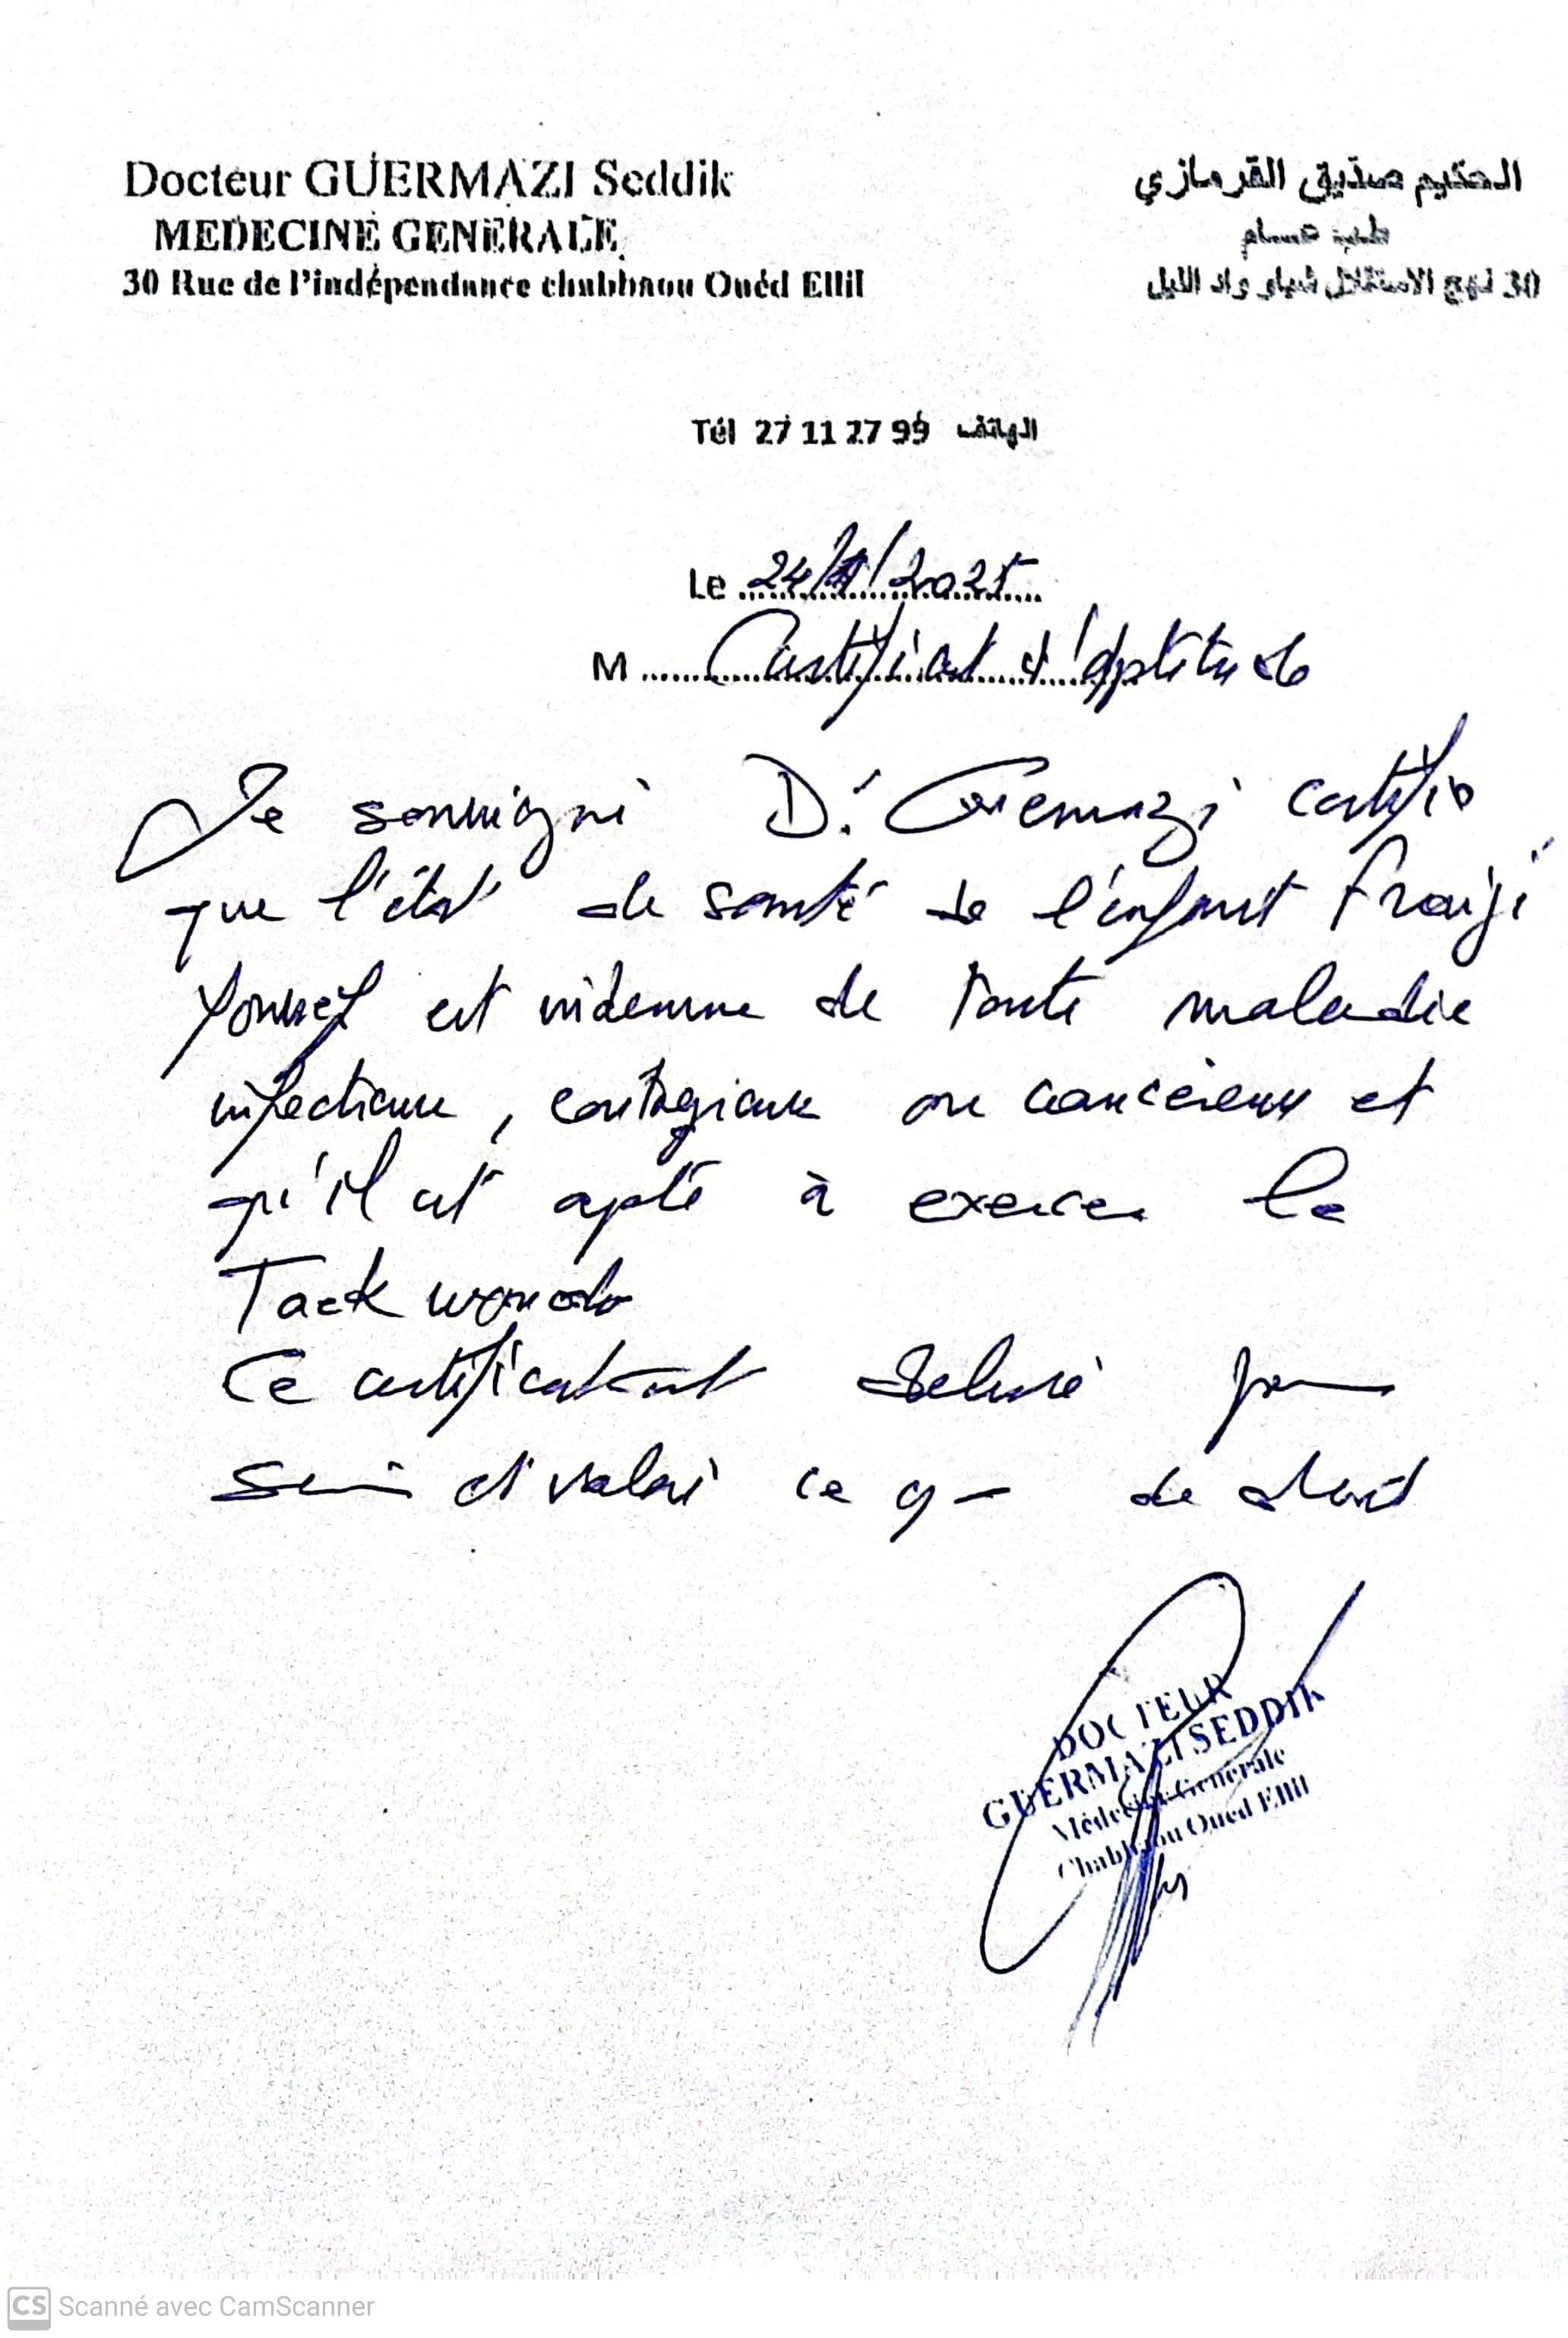 Docteur GUERMAZI Seddik
MEDECINE GENERALE
30 Rue de l'indépendance chabbaou Ouéd Ellil
الحكيم صديق القرمازي
طبيب عام
30 نهج الاستقلال شباو واد الليل
Tél 27 11 27 99 الهاتف
Le 24/ /2025
M Certificat d'aptitude
Je soussigné Dr Guermazi certifie
que l'état de santé de l'enfant Fraiji
Youssef est indemne de toute maladie
infectieuse, contagieuse ou cancéreuse et
qu'il est apte à exercer le
Taekwondo
Ce certificat est délivré pour
servir et valoir ce que de droit
DOCTEUR
GUERMAZI SEDDIK
Médecine Générale
Chabbaou Oued Ellil
CS Scanné avec CamScanner